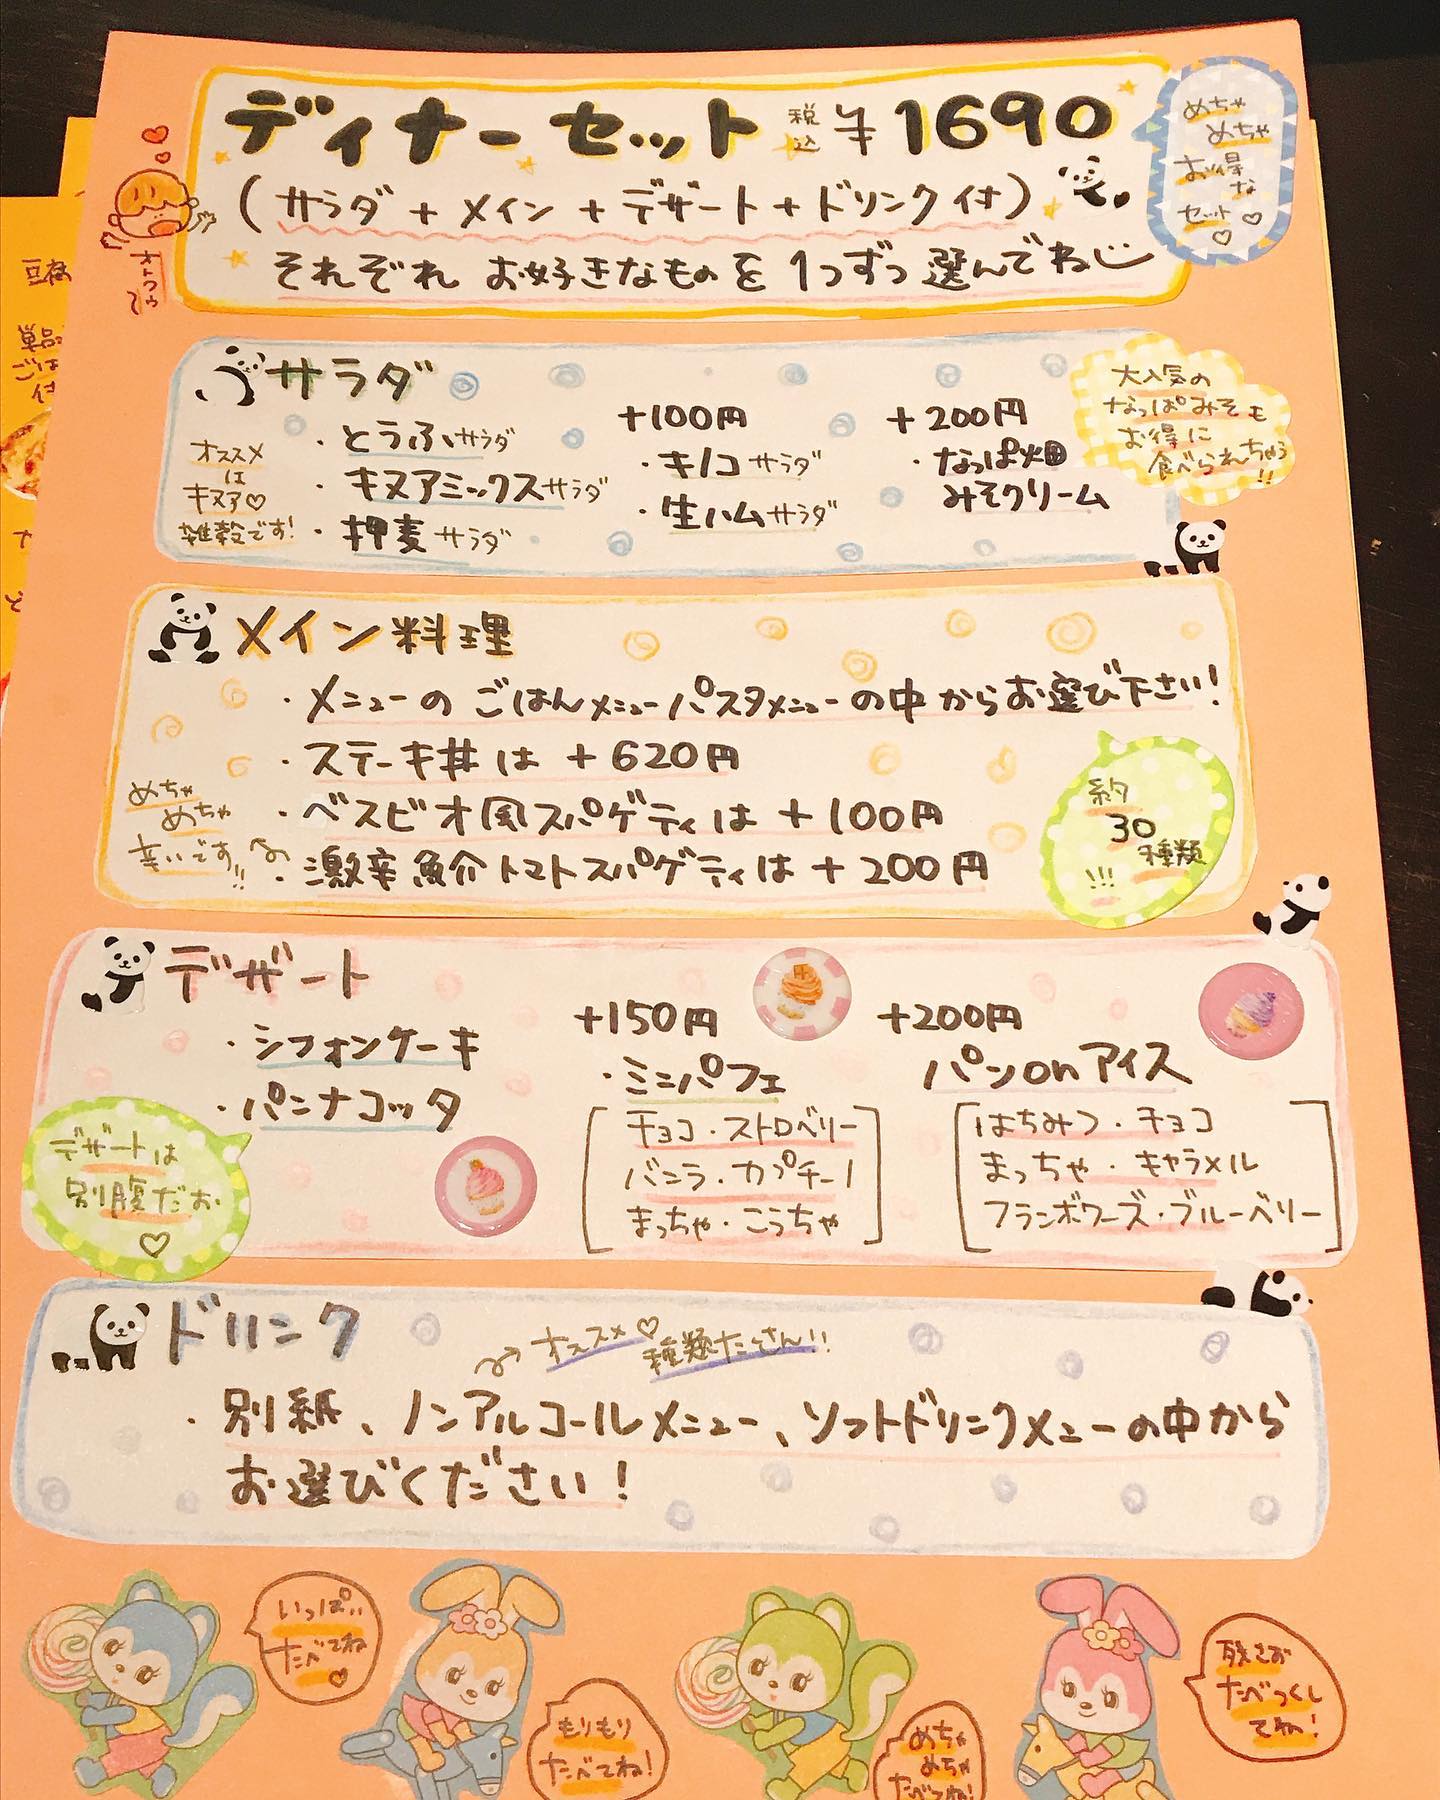 ディナーセット 税込 ¥1690
(サラダ+メイン+デザート+ドリンク付)
それぞれ お好きなものを1つずつ選んでね
めちゃ
めちゃ
お得
な
セット♡
♡
オトクゥ
豆腐
単品
ごは
付
サラダ
オススメ
は
キヌア♡
雑穀です!
・とうふサラダ
・キヌアミックスサラダ
・押麦サラダ
+100円
・キノコサラダ
・生ハムサラダ
+200円
・なっぱ畑
みそクリーム
大人気の
なっぱみそも
お得に
食べられちゃう
!!
メイン料理
・メニューのごはんメニューパスタメニューの中からお選び下さい!
・ステーキ丼は+620円
・ベスビオ風スパゲティは+100円
・激辛魚介トマトスパゲティは+200円
めちゃ
めちゃ
辛いです!!
約
30
種類
!!!
デザート
・シフォンケーキ
・パンナコッタ
デザートは
別腹だお
♡
+150円
・ミニパフェ
チョコ・ストロベリー
バニラ・カプチーノ
まっちゃ・こうちゃ
+200円
パンonアイス
はちみつ・チョコ
まっちゃ・キャラメル
フランボワーズ・ブルーベリー
ドリンク
オススメ♡
種類たくさん!!
・別紙、ノンアルコールメニュー、ソフトドリンクメニューの中から
お選びください!
いっぱい
たべてね
♡
もりもり
たべてね!
めちゃ
めちゃ
たべてね!
残さず
たべつくし
てね!